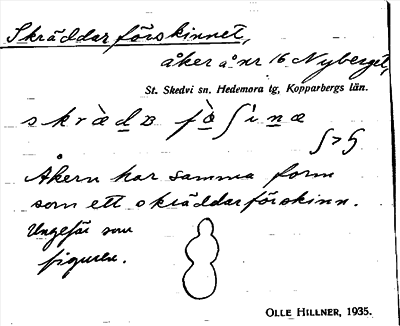 Skräddarförskinnet,
åker å nr 16 Nyberget,
St. Skedvi sn. Hedemora tg, Kopparbergs län.
Åkern har samma form
som ett skräddarförskinn.
Ungefär som
figuren.
OLLE HILLNER, 1935.